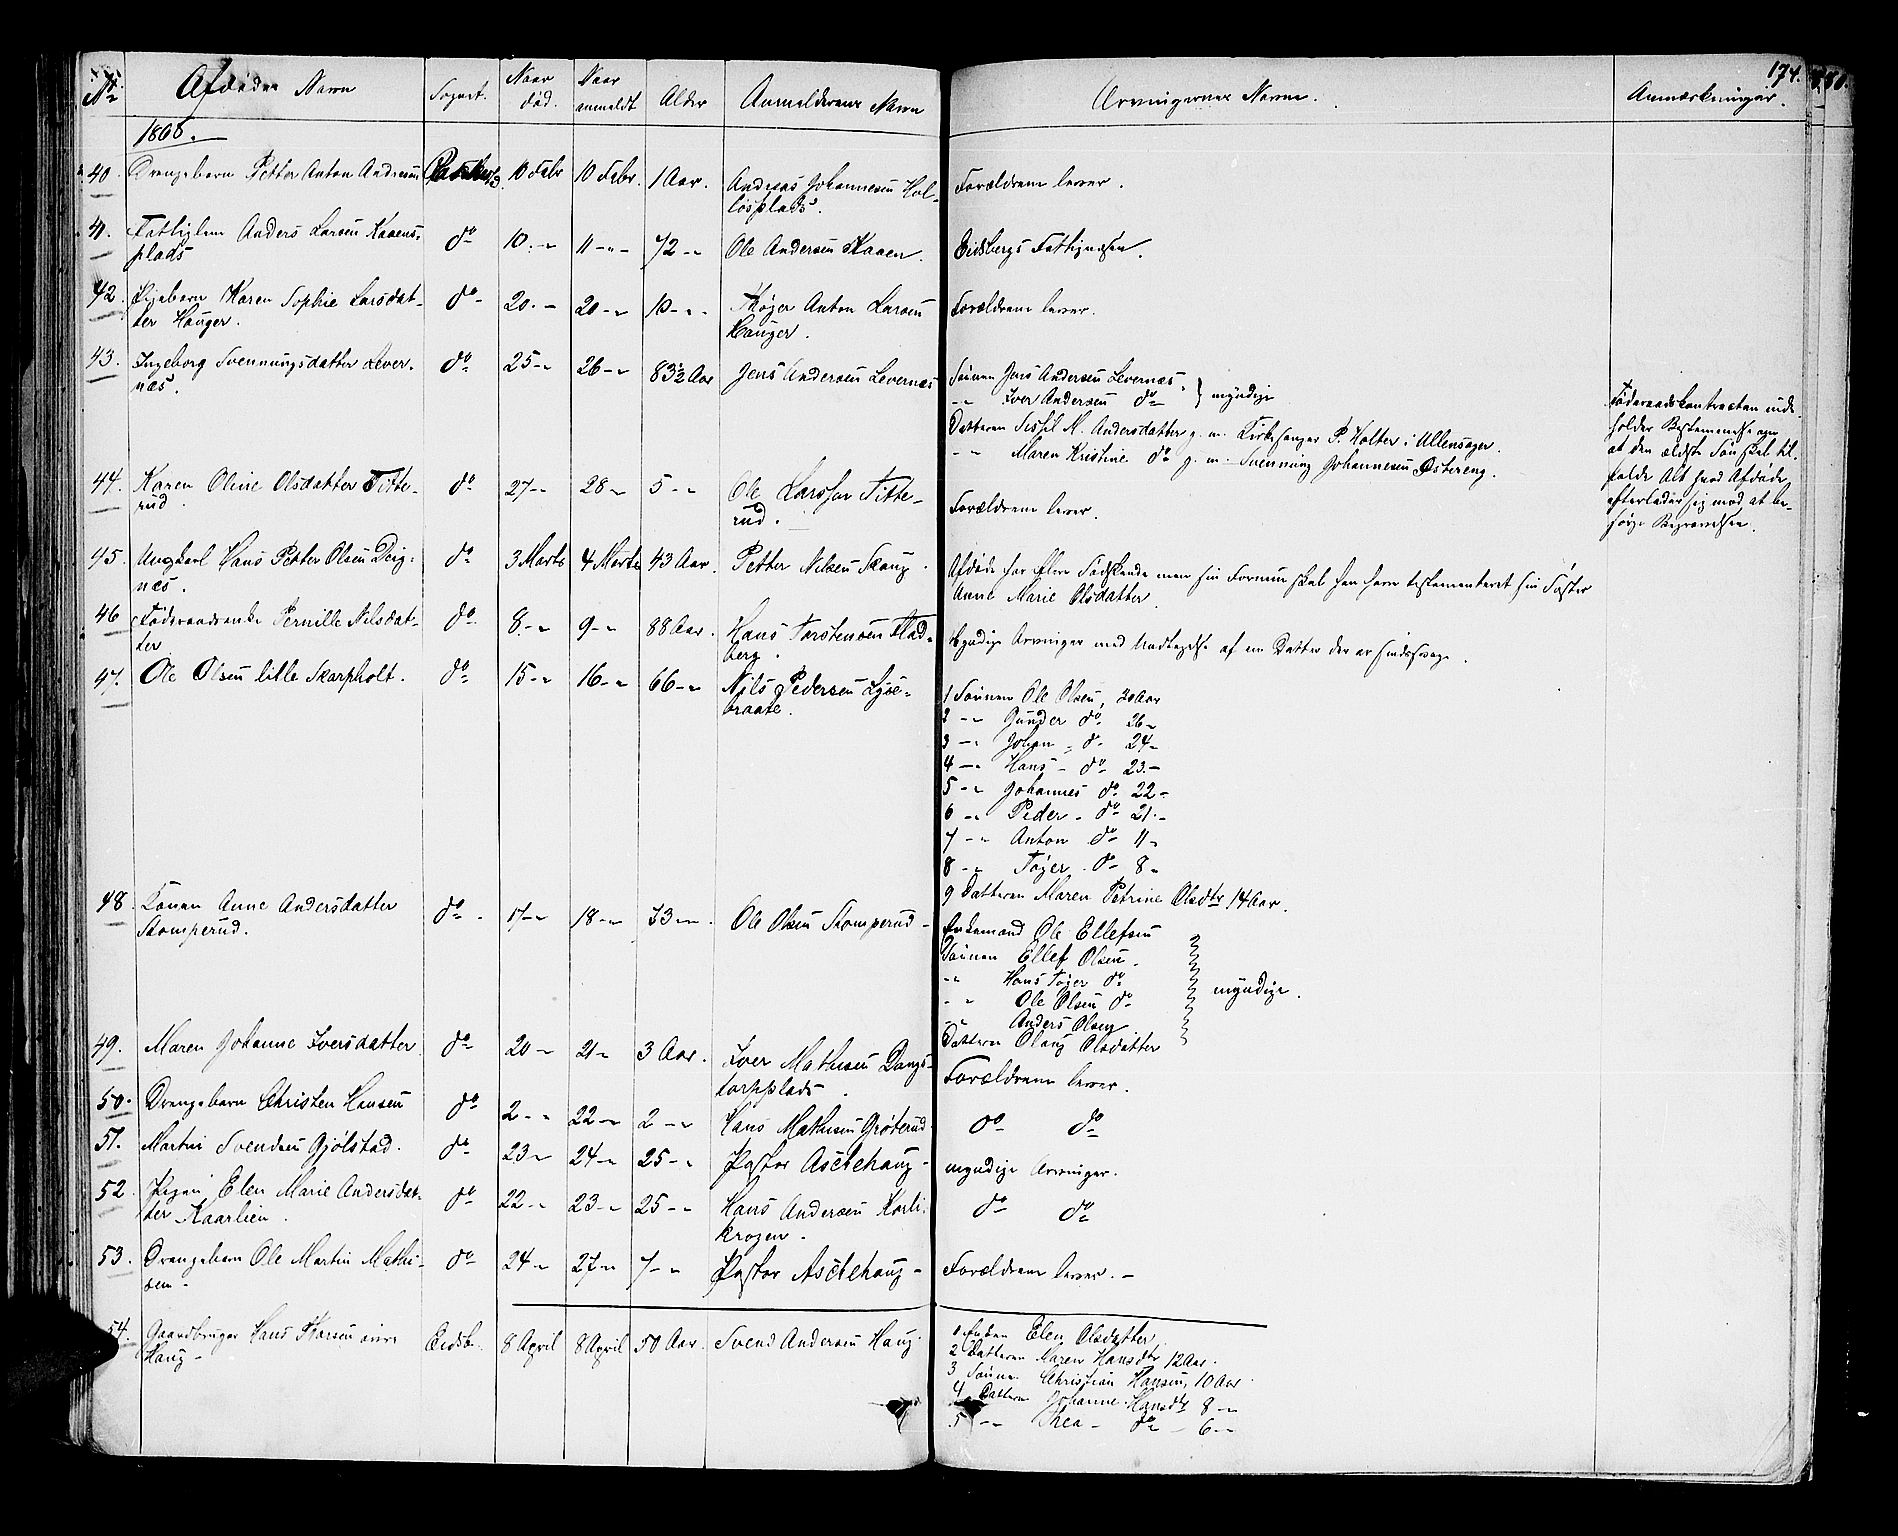 174.
No
Afdødes Navn
Sogn.
Naar død.
Naar anmeldt.
Alder
Anmelderens Navn
Arvingernes Navne.
Anmærkninger.
40. Drengebarn Petter Anton Andresen 10 Febr 10 Febr. 1 Aar. Andreas Johannesen Hol-
løsplads. Forældrene lever.
41. Fattiglem Anders Larsen Kaaens-
plads do 10.-" 11-"- 72-" Ole Andersen Kaaen. Eidsbergs Fattigvæsen.
42. Pigebarn Karen Sophie Larsdat-
ter Hauger. do 20.- 20-" 10-"- Thøger Anton Larsen
Hauger. Forældrene lever.
43. Ingeborg Svenningsdatter Lever-
næs. do 25-" 26-" 83½ Aar Jens Andersen Levernæs
Sønnen Jens Andersen Levernæs.
-" Iver Andersen do } myndige
Datteren Sissil M. Andersdatter g. m. Kirkesanger P. Holter i Ullensager.
-" Maren Kristine do g. m. Svenning Johannesen Østereng.
Føderaadskontracten inde-
holder Bestemmelse om
at den ældste Søn skal til-
falde Alt hvad Afdøde
efterlader sig mod at be-
sørge Begravelsen.
44. Karen Oline Olsdatter Titte-
rud. do 27-" 28-" 5-" Ole Larssen Titte-
rud. Forældrene lever.
45. Ungkarl Hans Petter Olsen Deig-
næs. do 3 Marts 4 Marts 43 Aar. Petter Nilsen Skaug. Afdøde har flere Sødskende men sin Formue skal han have testamenteret sin Søster
Anne Marie Olsdatter.
46 Føderaadsenke Pernille Nilsdat-
ter do 8-" 9-" 88 Aar. Hans Torstensen Flad-
berg. Myndige Arvinger med Undtagelse af en Datter der er sindssvag.
47. Ole Olsen lille Skarpholt. do 15-" 16-" 66-" Nils Pedersen Lyse-
braate.
1 Sønnen Ole Olsen, 30 Aar
2 -" Gunder do 26-
3 -" Johan - do 24-
4 -" Hans - do 23.-
5 -" Johannes do 22-
6 -" Peder - do 21.-
7 -" Anton do 11-
8 -" Tøger - do 8-
9 Datteren Maren Petrine Olsdtr 14 Aar.
48. Konen Anne Andersdatter
Stomperud. do 17-" 18-" 73-" Ole Olsen Stomperud -
Enkemand Ole Ellefsen
Sønnen Ellef Olsen.
-" Hans Tøger do
-" Ole Olsen do
-" Anders Olsen
Datteren Olaug Olsdatter
myndige.
49. Maren Johanne Iversdatter. do 20-" 21-" 3 Aar. Iver Mathisen Dangs-
torpplads. Forældrene lever.
50. Drengebarn Christen Hansen do 2-" 22-" 2-" Hans Mathisen Grøterud do do
51. Martin Svendsen Gjølstad. do 23-" 24-" 25-" Pastor Aschehaug - myndige Arvinger.
52. Pigen Elen Marie Andersdat-
ter Kaarlien. do 22-" 23-" 25-" Hans Andersen Karli-
krogen. do do
53. Drengebarn Ole Martin Mathi-
sen - do 24-" 27-" 7-" Pastor Aschehaug - Forældrene lever. -
54. Gaardbruger Hans Thorsen øvre
Haug - Eidsb. 8 April 8 April 50 Aar. Svend Andersen Haug
1 Enken Elen Olsdatter
2 Datteren Maren Hansdtr 12 Aar.
3 Sønnen Christian Hansen, 10 Aar.
4 Datteren Johanne Hansdtr 8-"
5 -" Thea - do - 6-"